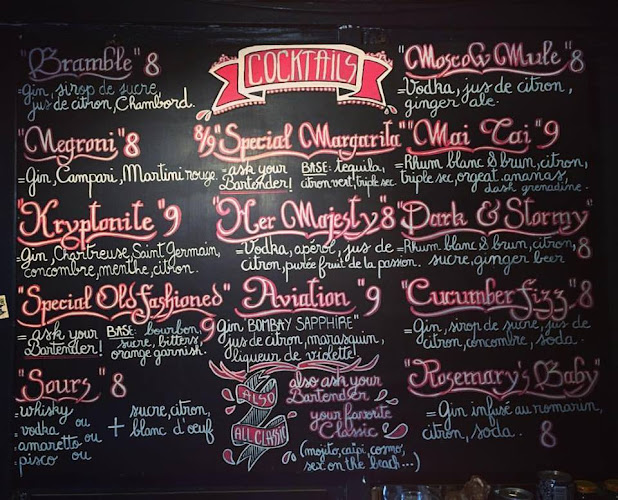 COCKTAILS
"Bramble" 8
= Gin, sirop de sucre,
jus de citron, Chambord.
"Negroni" 8
= Gin, Campari, Martini rouge.
"Kryptonite" 9
= Gin, Chartreuse, Saint Germain,
concombre, menthe, citron.
"Special Old Fashioned" 9
= ask your
Bartender!
BASE: bourbon
sucre, bitters,
orange garnish.
"Sours" 8
= whisky ou
vodka ou
amaretto ou
pisco ou
+ sucre, citron,
blanc d'oeuf
8/9 "Special Margarita"
= ask your
Bartender!
BASE: tequila,
citron vert, triple sec.
"Her Majesty" 8
= Vodka, apérol, jus de
citron, purée fruit de la passion.
"Aviation" 9
Gin "BOMBAY SAPPHIRE"
jus de citron, marasquin,
liqueur de violette!
ALSO
ALL CLASSIC
also ask your
Bartender
your favorite
Classic!
(mojito, caïpi, cosmo,
sex on the beach...)
"Moscow Mule" 8
= Vodka, jus de citron,
ginger ale.
"Mai Tai" 9
= Rhum blanc & brun, citron,
triple sec, orgeat, ananas,
dash grenadine.
"Dark & Stormy" 8
= Rhum blanc & brun, citron,
sucre, ginger beer
"Cucumber Fizz" 8
= Gin, sirop de sucre, jus de
citron, concombre, soda.
"Rosemary's Baby"
= Gin infusé au romarin,
citron, soda. 8